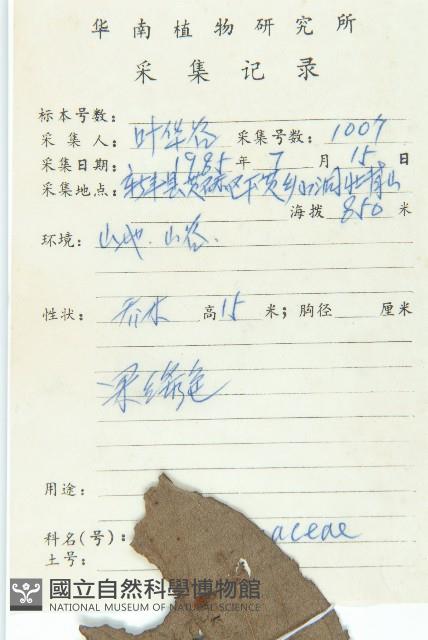 华南植物研究所
采集记录
标本号数：
采集人：叶华谷 采集号数：1007
采集日期：1985年7月15日
采集地点：新丰县黄磜区下黄乡
海拨 850 米
环境：山地. 山谷.
性状：乔木 高15米；胸径 厘米
果绿色
用途：
科名(号)：aceae
土号：
國立自然科學博物館
NATIONAL MUSEUM OF NATURAL SCIENCE